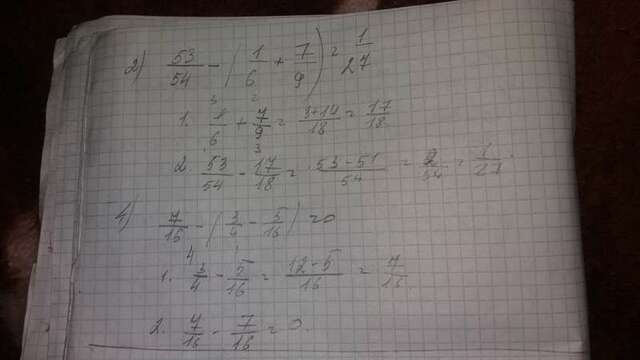 2) 53/54 - (1/6 + 7/9) = 1/27
1. 1/6 + 7/9 = 3+14/18 = 17/18
2. 53/54 - 17/18 = 53-51/54 = 2/54 = 1/27
4) 7/16 - (3/4 - 5/16) = 0
1. 3/4 - 5/16 = 12-5/16 = 7/16.
2. 7/16 - 7/16 = 0.